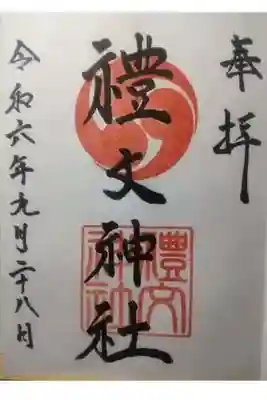 奉拝
禮文神社
令和六年九月二十八日
禮文
神社